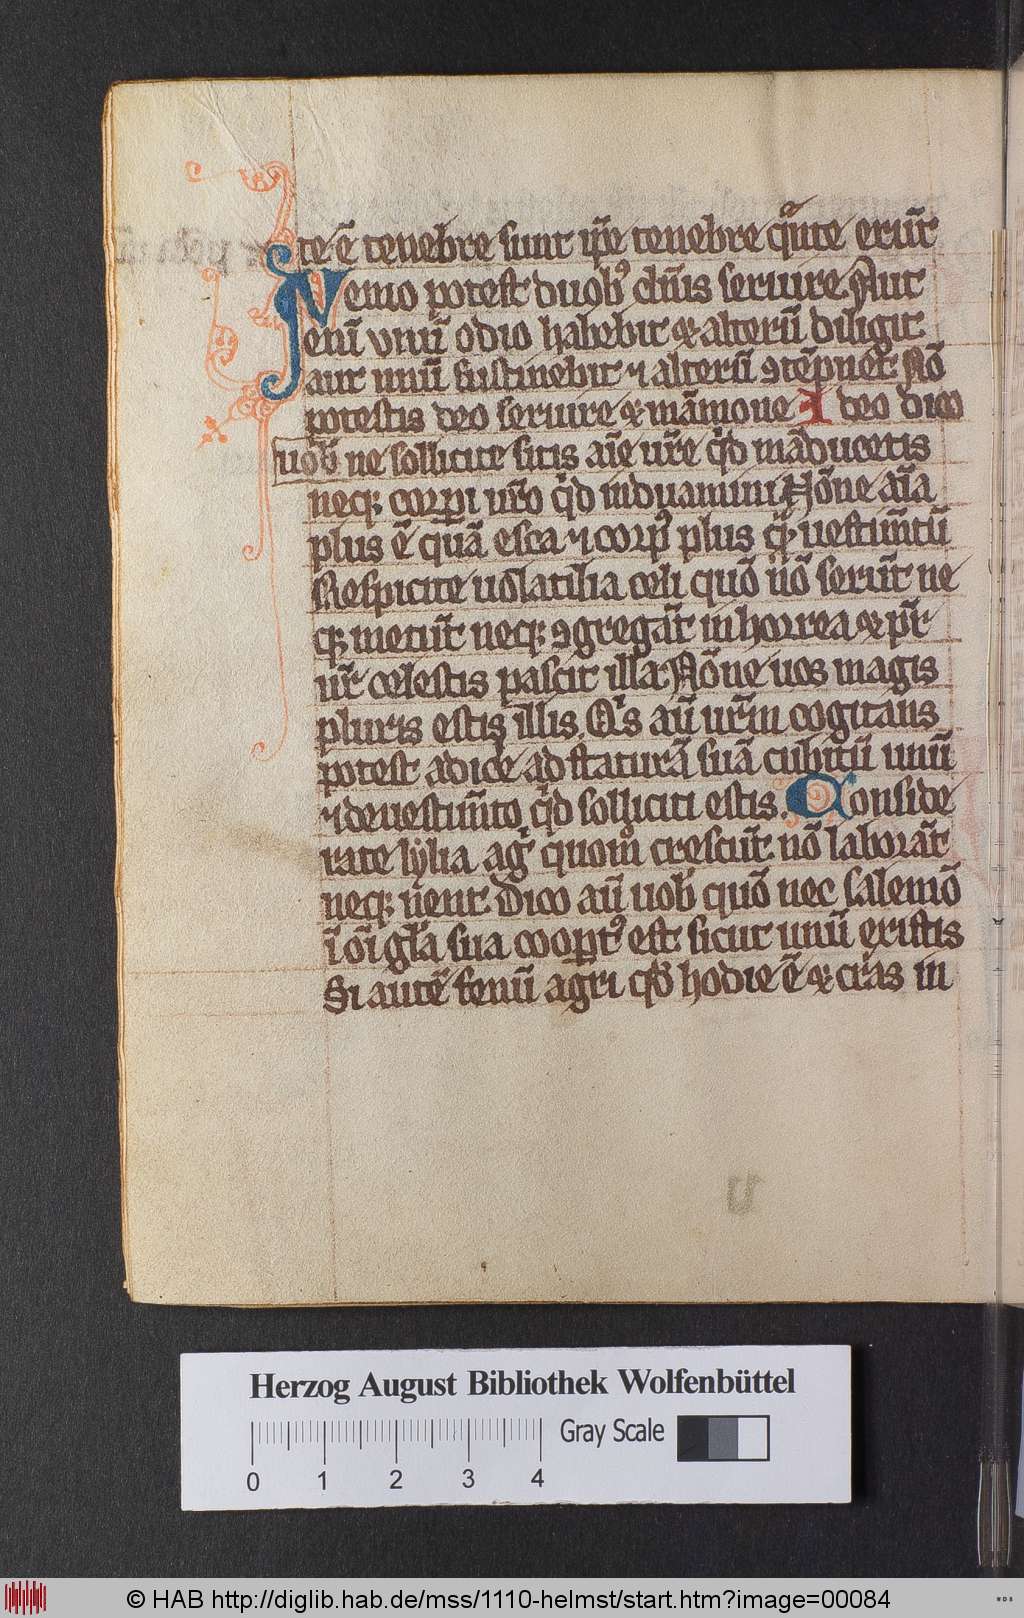 te ē tenebre sunt ip̄e tenebre qͣnte erūt
Nemo potest duobꝰ dn̄is seruire Aut
enī vnū odio habebit et alterū diligit
aut unū sustinebit ⁊ alterū ꝯtēpnet Nō
potestis deo seruire et māmone Ideo dico
uob̄ ne solliciti sitis aīe ur̄e qͥd māducetis
neqꝫ corꝑi ur̄o qͥd induamini Nōne aīa
plus ē quā esca ⁊ corpꝰ plus qͣꝫ uestimn̄tū
Respicite uolatilia celi quō nō serūt ne
qꝫ metūt neqꝫ ꝯgregāt in horrea et pr̄
ur̄ celestis pascit illa Nōne uos magis
pluris estis illis. Qͥs aū ur̄m cogitans
potest adice ad staturā suā cubitū unū
⁊ de uestimn̄to qͥd solliciti estis. Conside
rate lylia agͥ quomͦ crescūt nō laborāt
neqꝫ nent Dico aū uob̄ quō nec salemō
ī oī gl̄a sua cooꝑtꝰ est sicut unū ex istis
Si autē fenū agri qd̄ hodie ē et cͣas in
Herzog August Bibliothek Wolfenbüttel
Gray Scale
0 1 2 3 4
© HAB http://diglib.hab.de/mss/1110-helmst/start.htm?image=00084